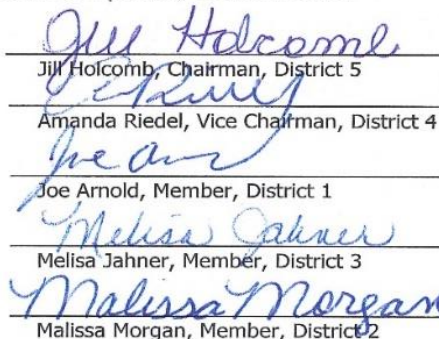 Jill Holcomb
Jill Holcomb, Chairman, District 5
Amanda Riedel, Vice Chairman, District 4
Joe Arnold, Member, District 1
Melisa Jahner
Melisa Jahner, Member, District 3
Malissa Morgan
Malissa Morgan, Member, District 2